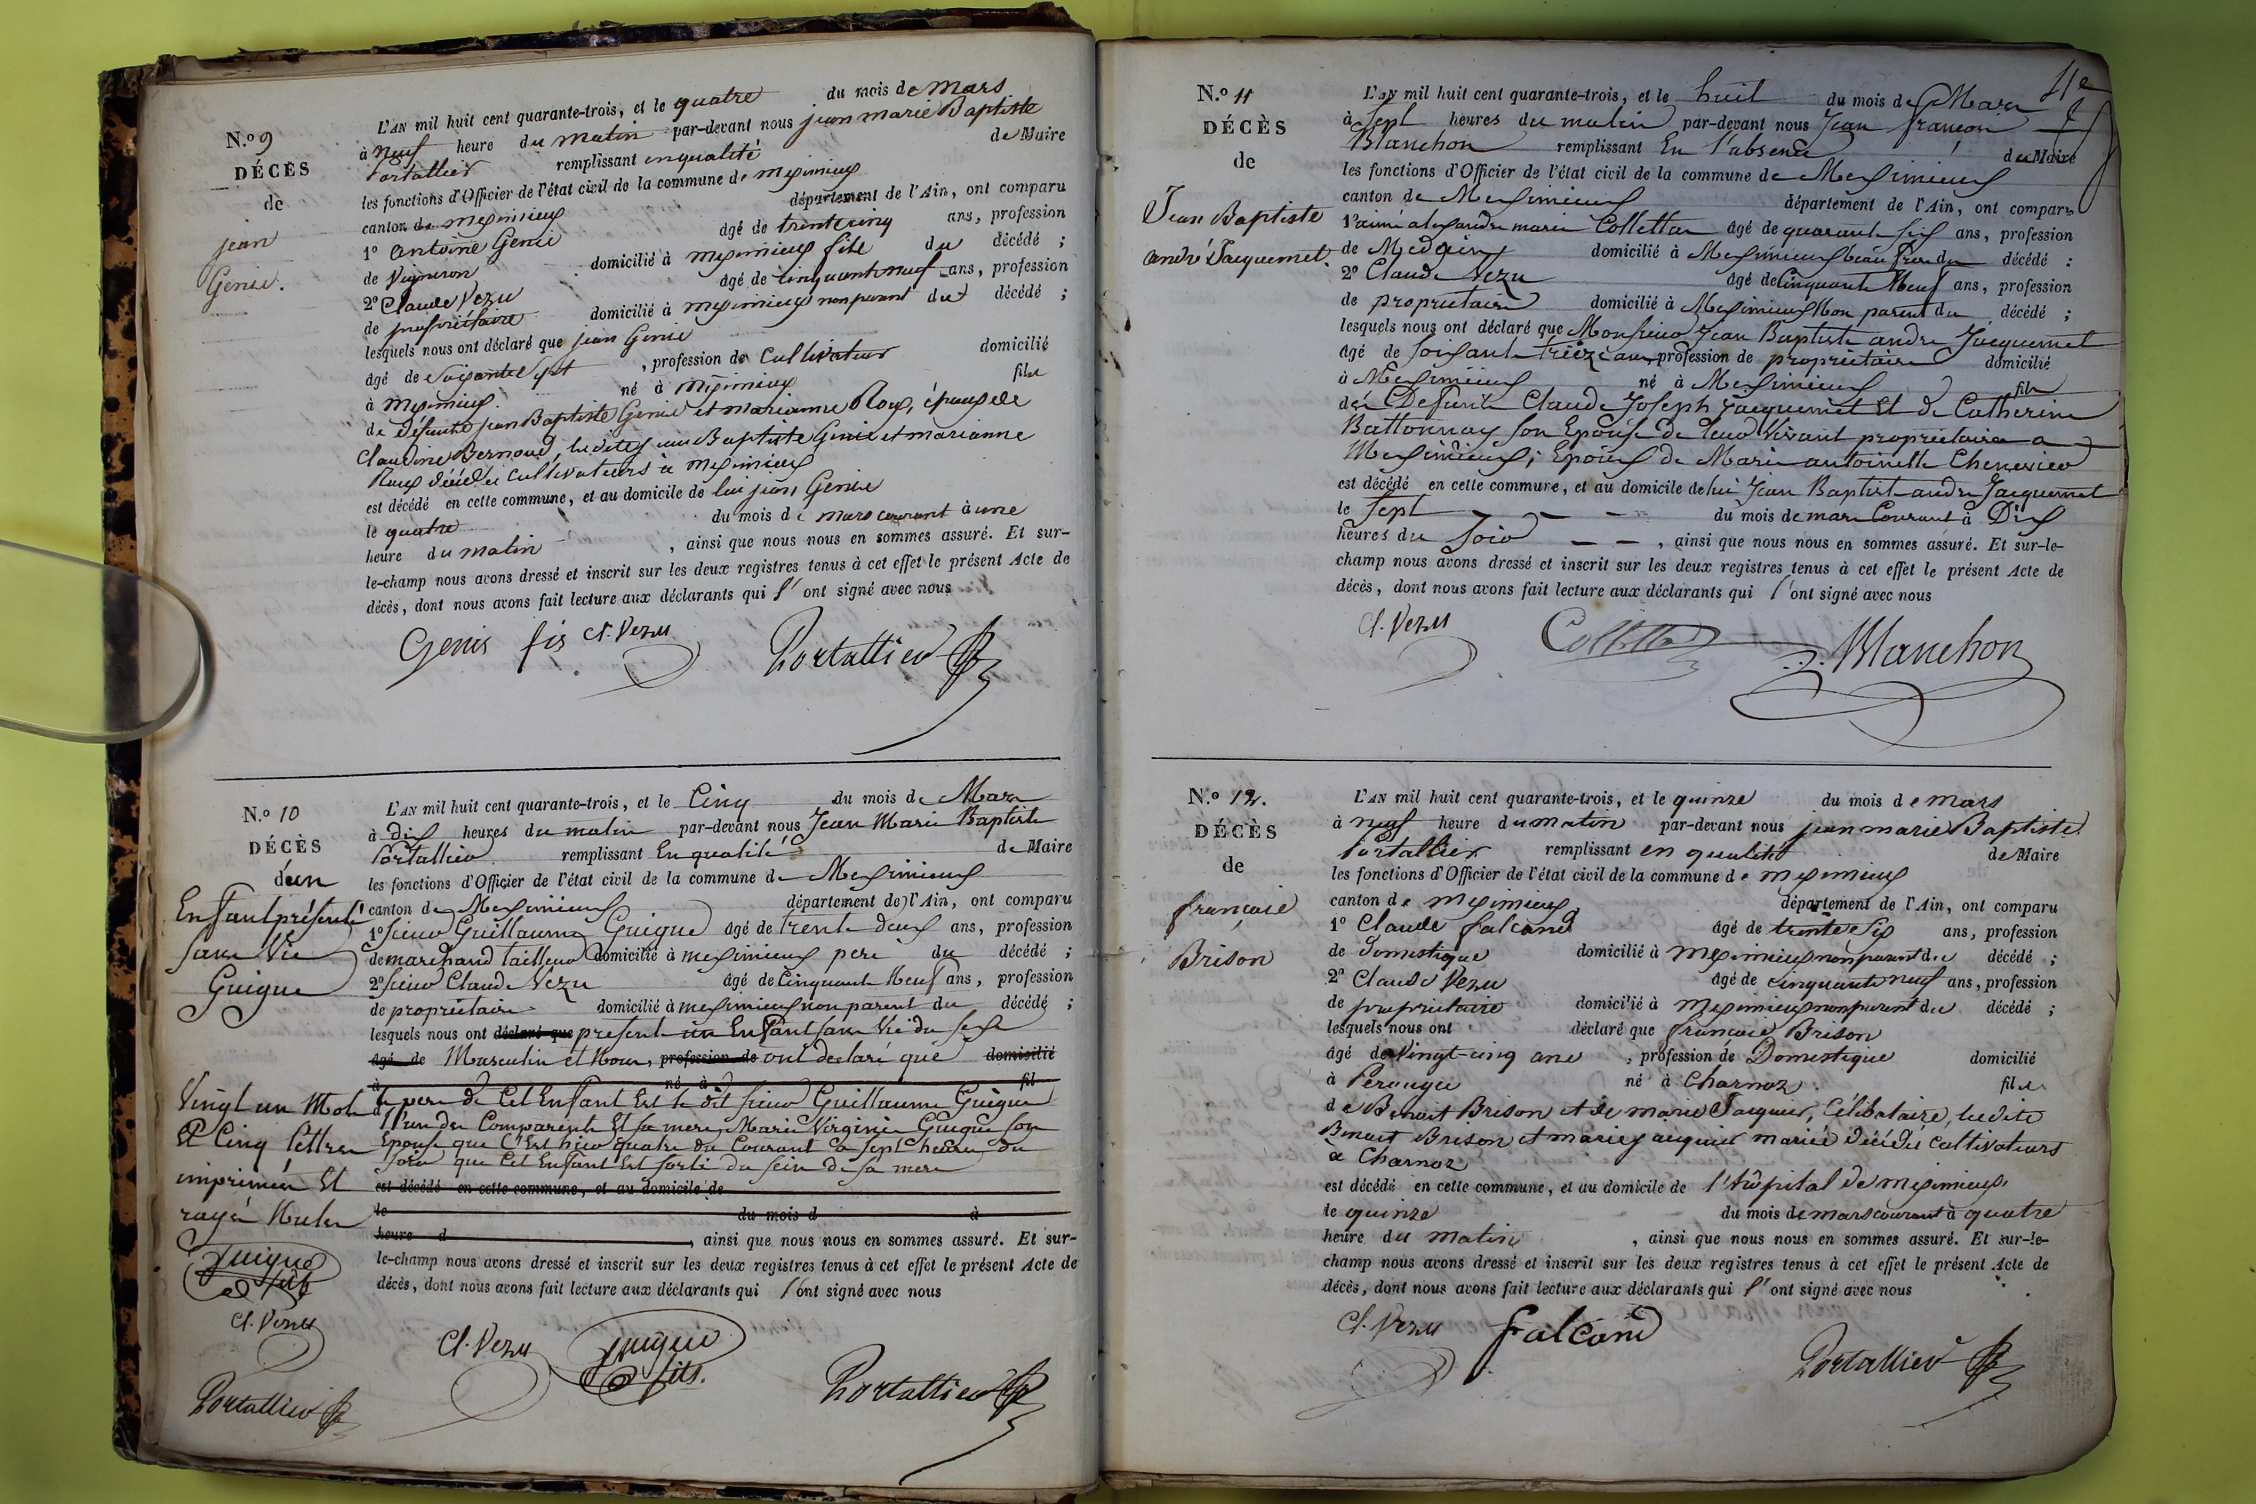 N.º 9
DÉCÈS
de
jean
Genis.
L'AN mil huit cent quarante-trois, et le quatre du mois de Mars
à neuf heure du matin par-devant nous jean marie Baptiste
Portallier remplissant en qualité de Maire
les fonctions d'Officier de l'état civil de la commune de meximieux
canton de meximieux département de l'Ain, ont comparu
1º antoine Genis agé de trente cinq ans, profession
de Vigneron domicilié à meximieux fils du décédé ;
2º Claude Vezu agé de cinquante neuf ans, profession
de propriétaire domicilié à meximieux non parent du décédé ;
lesquels nous ont déclaré que jean Genis
agé de soixante sept , profession de Cultivateur domicilié
à meximieux. né à meximieux fils
de défunts jean Baptiste Genis et marianne Roux, époux de
Claudine Bernoud, les dits jean Baptiste Genis et marianne
Roux décédés cultivateurs à meximieux
est décédé en cette commune, et au domicile de lui jean Genis
le quatre du mois de mars courant à une
heure du matin , ainsi que nous nous en sommes assuré. Et sur-
le-champ nous avons dressé et inscrit sur les deux registres tenus à cet effet le présent Acte de
décès, dont nous avons fait lecture aux déclarants qui l' ont signé avec nous
Genis fis Cl. Vezu Portallier
N.º 10
DÉCÈS
d'un
Enfant présenté
sans Vie
Guigue
Vingt un Mots
Et Cinq lettres
imprimés Et
rayés Nuls
guigue
fils
Cl. Vezu
Portallier
L'AN mil huit cent quarante-trois, et le Cinq du mois de Mars
à dix heures du matin par-devant nous Jean Marie Baptiste
Portallier remplissant En qualité de Maire
les fonctions d'Officier de l'état civil de la commune de Meximieux
canton de Meximieux département de l'Ain, ont comparu
1º sieur Guillaume Guigue agé de trente deux ans, profession
de marchand tailleur domicilié à meximieux pere du décédé ;
2º sieur Claude Vezu agé de Cinquante Neuf ans, profession
de propriétaire domicilié à meximieux non parent du décédé ;
lesquels nous ont déclaré que présenté un Enfant sans Vie du sexe
agé de Masculin et Nous, profession de ont declaré que domicilié
à né à fil
le pere de Cet Enfant Est le dit sieur Guillaume Guigue
l'un des Comparants Et sa mere Marie Virginie Guigue son
Epouse que C'Est hier quatre du Courant a sept heures du
soir que Cet Enfant Est sorti du sein de sa mere
est décédé en cette commune, et au domicile de
le du mois d à
heure d , ainsi que nous nous en sommes assuré. Et sur-
le-champ nous avons dressé et inscrit sur les deux registres tenus à cet effet le présent Acte de
décès, dont nous avons fait lecture aux déclarants qui l'ont signé avec nous
Cl. Vezu guigue fils. Portallier
11e
N.º 11
DÉCÈS
de
Jean Baptiste
andré Jacquemet.
L'AN mil huit cent quarante-trois, et le huit du mois de Mars
à Sept heures du matin par-devant nous Jean françois
Blanchon remplissant En l'absence du Maire
les fonctions d'Officier de l'état civil de la commune de Meximieux
canton de Meximieux département de l'Ain, ont comparu
1º aimé alexandre marie Collettaz agé de quarante six ans, profession
de Medecin domicilié à Meximieux beau frere du décédé ;
2º Claude Vezu agé de Cinquante Neuf ans, profession
de propriétaire domicilié à Meximieux Non parent du décédé ;
lesquels nous ont déclaré que Monsieur Jean Baptiste andré Jacquemet
agé de soixante treize ans, profession de propriétaire domicilié
à Meximieux né à Meximieux fils
de Defunts Claude Joseph Jacquemet Et de Catherine
Battonnay son Epouse de leur Vivant propriétaires a
Meximieux ; Epoux de Marie antoinette Chenevier
est décédé en cette commune, et au domicile de lui Jean Baptiste andré Jacquemet
le sept du mois de mars Courant à Dix
heures du soir , ainsi que nous nous en sommes assuré. Et sur-le-
champ nous avons dressé et inscrit sur les deux registres tenus à cet effet le présent Acte de
décès, dont nous avons fait lecture aux déclarants qui l'ont signé avec nous
Cl. Vezu Collettaz Blanchon
N.º 12.
DÉCÈS
de
françoise
Brison
L'AN mil huit cent quarante-trois, et le quinze du mois de mars
à neuf heure du matin par-devant nous jean marie Baptiste
Portallier remplissant en qualité de Maire
les fonctions d'Officier de l'état civil de la commune de meximieux
canton de meximieux département de l'Ain, ont comparu
1º Claude falcond agé de trente six ans, profession
de Domestique domicilié à meximieux non parent du décédé ;
2º Claude Vezu agé de cinquante neuf ans, profession
de propriétaire domicilié à meximieux non parent du décédé ;
lesquels nous ont déclaré que françoise Brison
agé de Vingt-cinq ans , profession de Domestique domicilié
à Perouges né à Charnoz. fille
de Benoit Brison et de marie Jacquier, Célibataire, les dits
Benoit Brison et marie jacquier mariés décédés cultivateurs
à Charnoz
est décédé en cette commune, et au domicile de l'hôpital de meximieux
le quinze du mois de mars courant à quatre
heure du matin , ainsi que nous nous en sommes assuré. Et sur-le-
champ nous avons dressé et inscrit sur les deux registres tenus à cet effet le présent Acte de
décès, dont nous avons fait lecture aux déclarants qui l' ont signé avec nous
Cl. Vezu falcond Portallier